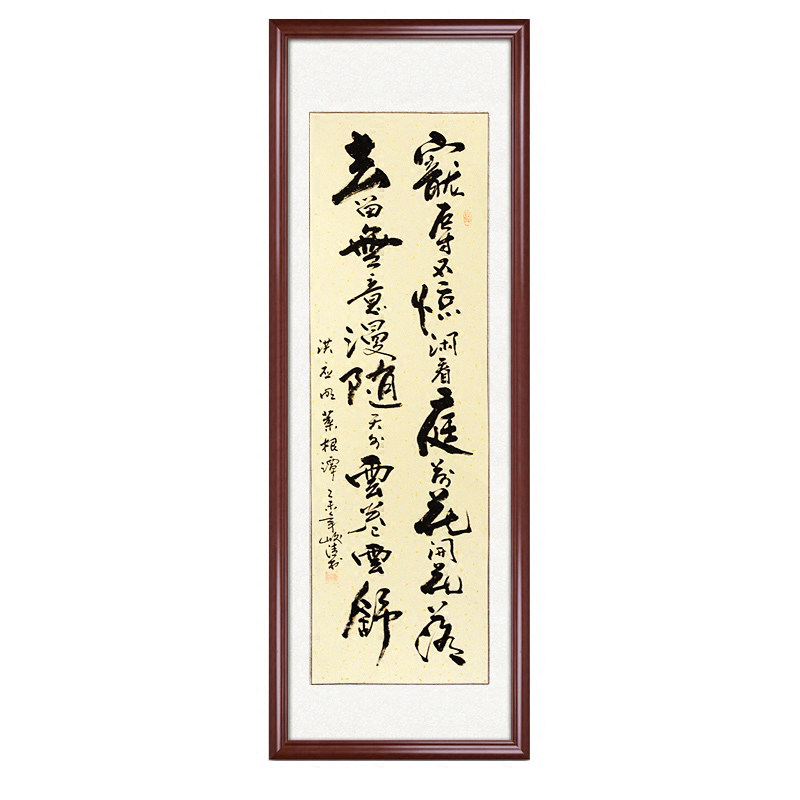 寵辱不惊闲看庭前花開花落
去留無意漫随天外雲卷雲舒
洪应明菜根譚 乙未年